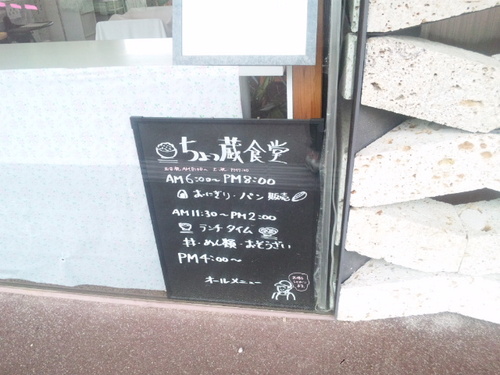 ちょっ蔵食堂
AM6:00〜PM8:00
おにぎり・パン販売
AM11:30〜PM2:00
ランチタイム
丼・めん類・おそうざい
PM4:00〜
オールメニュー